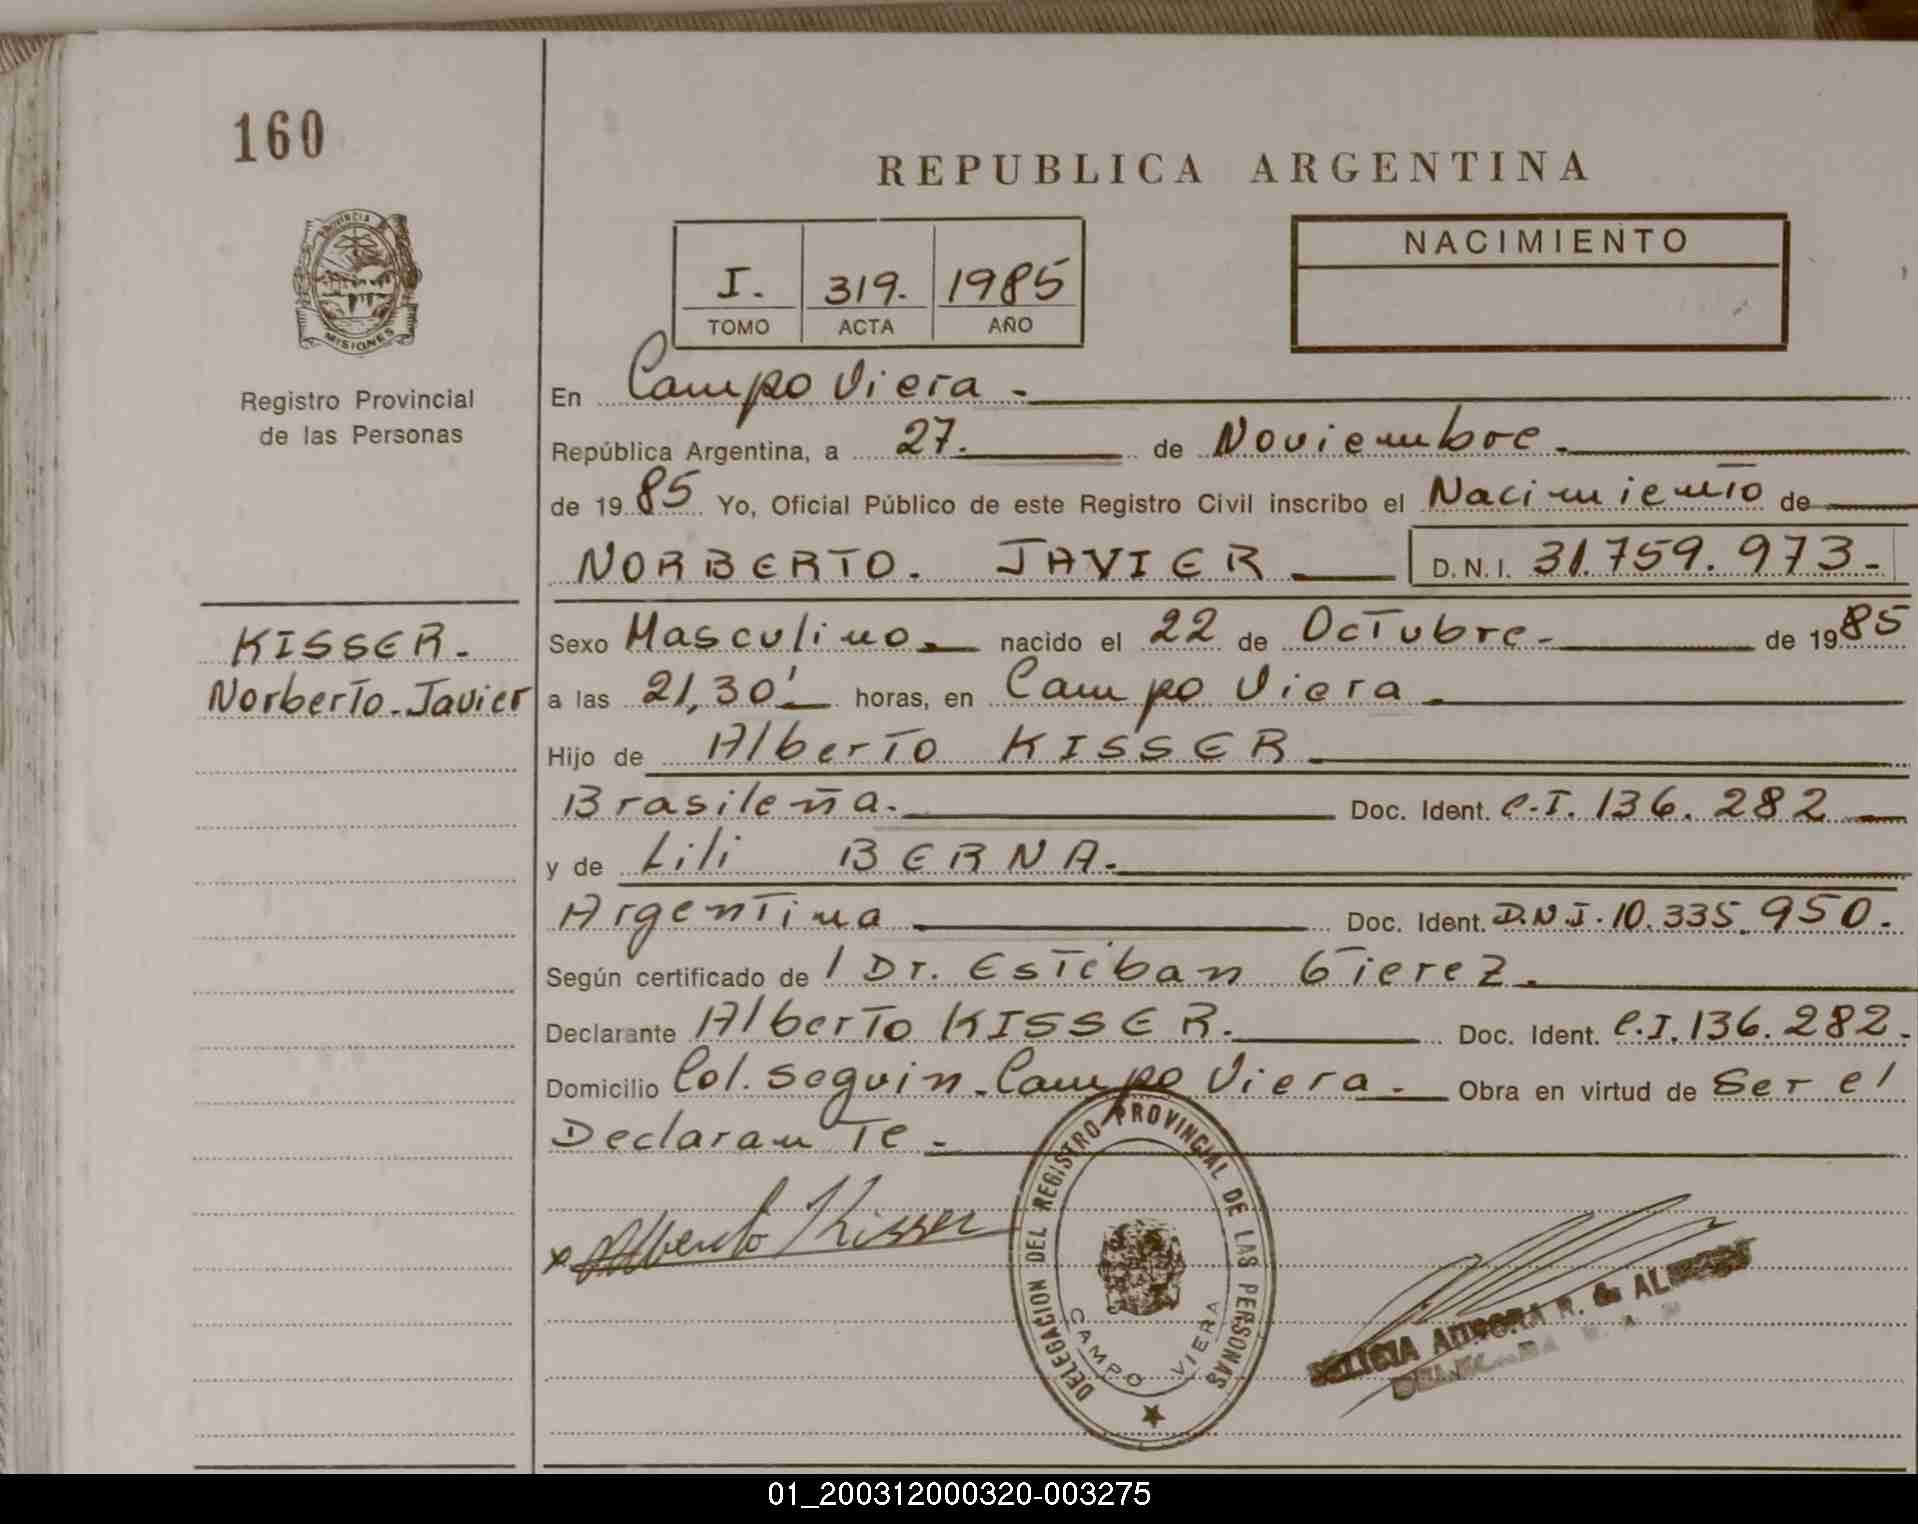 160
REPUBLICA ARGENTINA
PROVINCIA
MISIONES
Registro Provincial
de las Personas
I. 319. 1985
TOMO ACTA AÑO
NACIMIENTO
En Campo Viera -
República Argentina, a 27. de Noviembre.
de 1985 Yo, Oficial Público de este Registro Civil inscribo el Nacimiento de
NORBERTO. JAVIER D.N.I. 31.759.973-
KISSER.
Norberto-Javier
Sexo Masculino. nacido el 22 de Octubre. de 1985
a las 21,30' horas, en Campo Viera
Hijo de Alberto KISSER
Brasileña. Doc. Ident. C.I. 136.282
y de Lili BERNA.
Argentina Doc. Ident. D.N.I. 10.335.950.
Según certificado de / Dr. Esteban Gierez.
Declarante Alberto KISSER. Doc. Ident. C.I. 136.282.
Domicilio Col. Seguin-Campo Viera. Obra en virtud de Ser el
Declarante-
x Alberto Kisser
DELEGACION DEL REGISTRO PROVINCIAL DE LAS PERSONAS
CAMPO VIERA
R. de
01_200312000320-003275